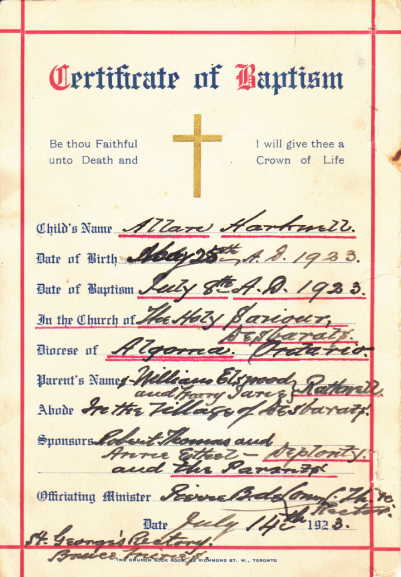 Certificate of Baptism
Be thou Faithful
unto Death and
I will give thee a
Crown of Life
Child's Name Allan
Date of Birth May 25th A.D. 1923.
Date of Baptism July 8th A.D. 1923.
In the Church of The Holy Saviour,
Desbarats,
Diocese of Algoma. Ontario.
Parent's Names William Elswood
and Harry
Abode In the Village of Desbarats.
Sponsors Robert Thomas and
Annie Ethel -
and the Parents
Officiating Minister Pierre B. de
Rector.
Date July 14th 1923.
St. George's Rectory.
Bruce Mines
THE CHURCH BOOK ROOM, RICHMOND ST. W., TORONTO